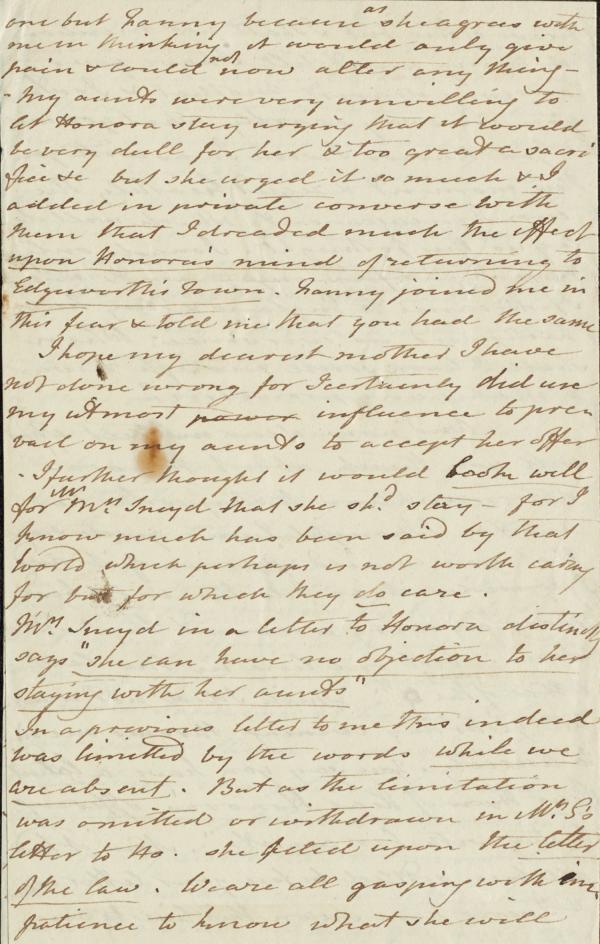 one but Fanny because as she agrees with
me in thinking it would only give
pain & could not now alter any thing –
- My aunts were very unwilling to
let Honora stay urging that it would
be very dull for her & too great a sacri
fice &c but she urged it so much & I
added in private converse with
them that I dreaded much the effect
upon Honora's mind of returning to
Edgeworth's Town. Fanny joined me in
this fear & told me that you had the same
I hope my dearest mother I have
not done wrong for I certainly did use
my utmost power influence to pre
vail on my aunts to accept her offer
- I further thought it would look well
for Mrs Sneyd that she shd stay – for I
know much has been said by that
world which perhaps is not worth caring
for but for which they do care.
Mrs Sneyd in a letter to Honora distinctly
says "she can have no objection to her
staying with her aunts"
In a previous letter to me this indeed
was limitted by the words while we
are absent. But as the limitation
was omitted or withdrawn in Mrs S's
letter to Ho. she acted upon the letter
of the law. We are all gasping with im
patience to know what she will